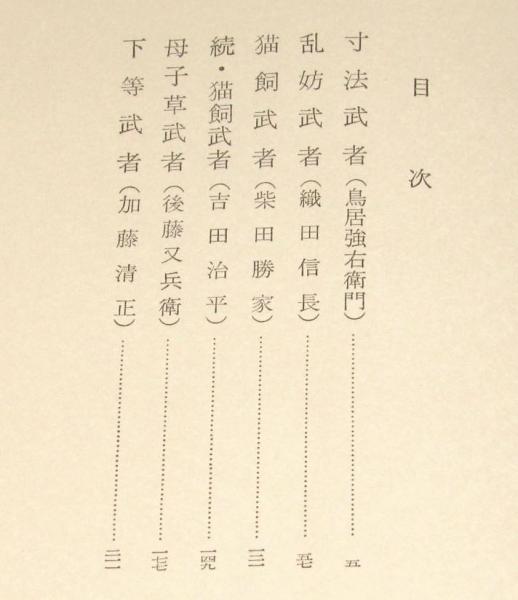 目次
寸法武者（鳥居強右衛門）……五
乱妨武者（織田信長）……五七
猫飼武者（柴田勝家）……一三一
続・猫飼武者（吉田治平）……一四九
母子草武者（後藤又兵衛）……一七七
下等武者（加藤清正）……二三一